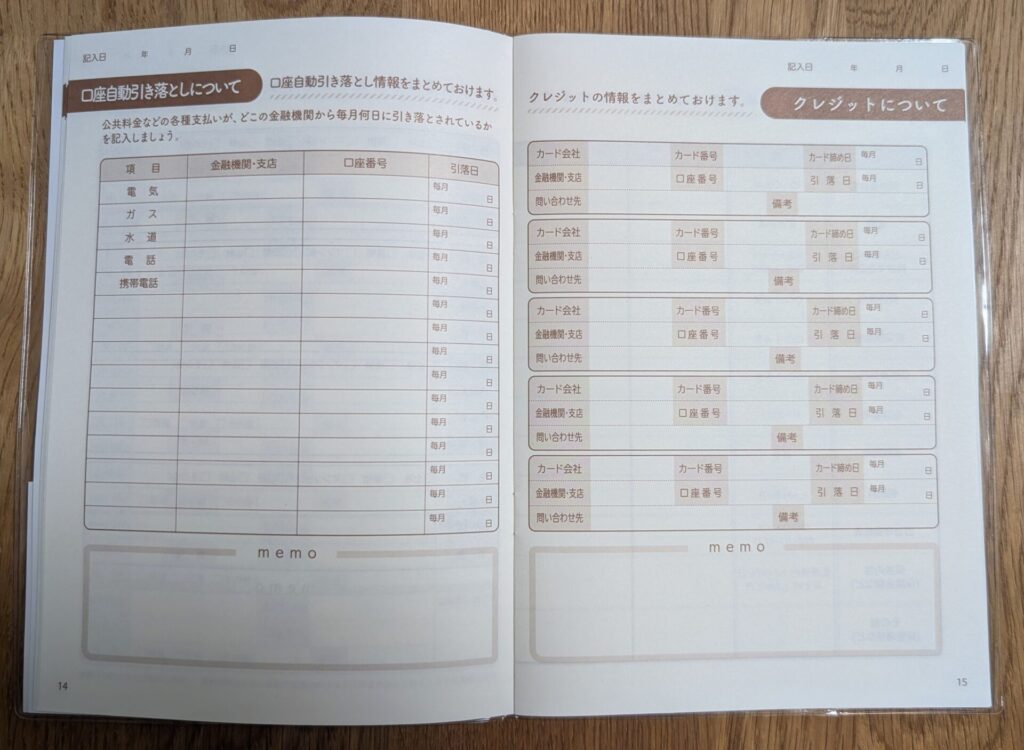 記入日 年 月 日
口座自動引き落としについて 口座自動引き落とし情報をまとめておけます。
公共料金などの各種支払いが、どこの金融機関から毎月何日に引き落とされているか
を記入しましょう。
項 目 金融機関・支店 口座番号 引落日
電 気 毎月 日
ガ ス 毎月 日
水 道 毎月 日
電 話 毎月 日
携帯電話 毎月 日
毎月 日
毎月 日
毎月 日
毎月 日
毎月 日
毎月 日
毎月 日
毎月 日
毎月 日
毎月 日
memo
14
記入日 年 月 日
クレジットの情報をまとめておけます。 クレジットについて
カード会社 カード番号 カード締め日 毎月 日
金融機関・支店 口座番号 引落日 毎月 日
問い合わせ先 備考
カード会社 カード番号 カード締め日 毎月 日
金融機関・支店 口座番号 引落日 毎月 日
問い合わせ先 備考
カード会社 カード番号 カード締め日 毎月 日
金融機関・支店 口座番号 引落日 毎月 日
問い合わせ先 備考
カード会社 カード番号 カード締め日 毎月 日
金融機関・支店 口座番号 引落日 毎月 日
問い合わせ先 備考
カード会社 カード番号 カード締め日 毎月 日
金融機関・支店 口座番号 引落日 毎月 日
問い合わせ先 備考
memo
15